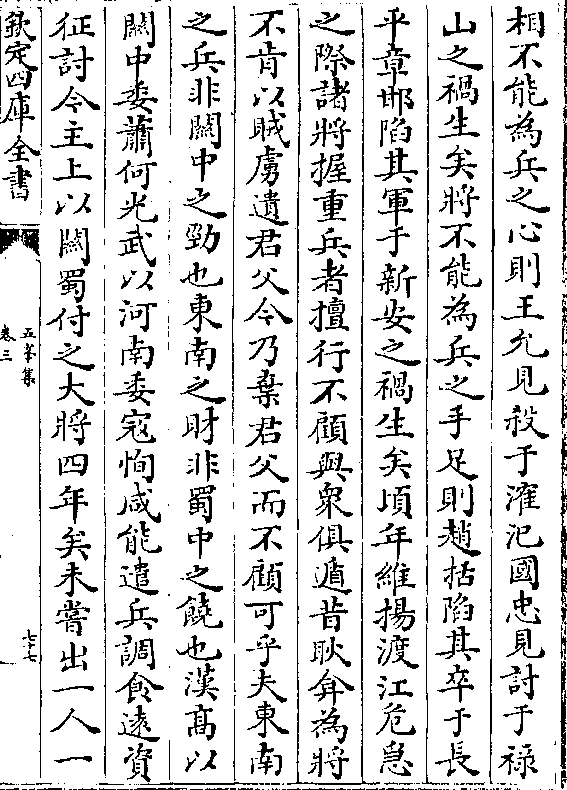 相不能為兵之心則王允見殺于漼汜國忠見討于祿
山之禍生矣將不能為兵之手足則趙括陷其卒于長
平章邯陷其軍于新安之禍生矣頃年維揚渡江危急
之際諸將握重兵者擅行不顧與衆俱遁昔耿弇為將
不肯以賊虜遺君父今乃棄君父而不顧可乎夫東南
之兵非關中之勁也東南之財非蜀中之饒也漢髙以
關中委蕭何光武以河南委寇恂咸能遣兵調食逺資
征討今主上以關蜀付之大將四年矣未嘗出一人一
欽定四庫全書
五峯集
卷三
七十七